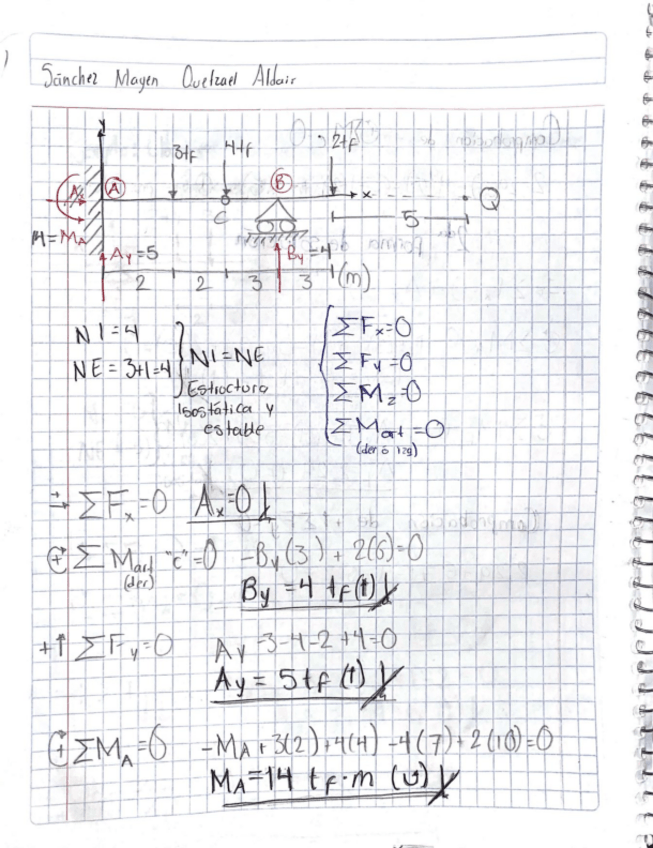 Sánchez Mayen Quetzael Aldair
y
3tf 4tf 2tf
A B x Q
C 5
14=MA
Ay=5 By=4
2 2 3 3 (m)
NI=4
NE=3+1=4
NI=NE
Estructura
Isostática y
estable
ΣFx=0
ΣFy=0
ΣMz=0
ΣMart=0
(der ó izq)
ΣFx=0 Ax=0
ΣMart "c"=0 -By(3)+2(6)=0
(der)
By=4 tf(↑)
+↑ΣFy=0 Ay-3-4-2+4=0
Ay=5tf (↑)
ΣMA=0 -MA+3(2)+4(4)-4(7)+2(10)=0
MA=14 tf·m (↺)